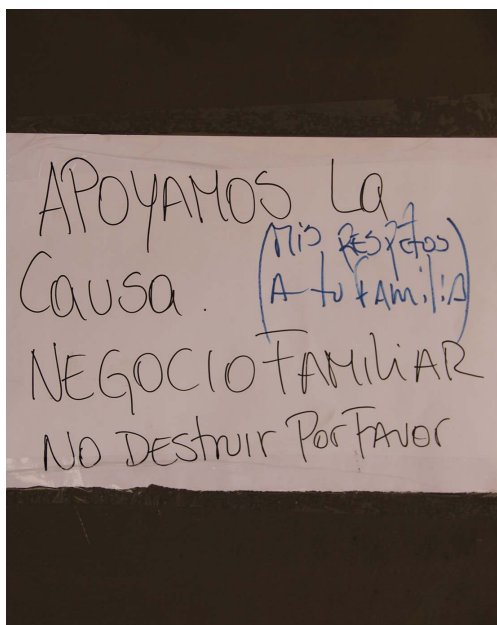 APOYAMOS La
Causa.
(Mis RESpEtos
A tu FAMiliA)
NEGOCIO FAMILiAR
NO DEStruir Por FAVOr